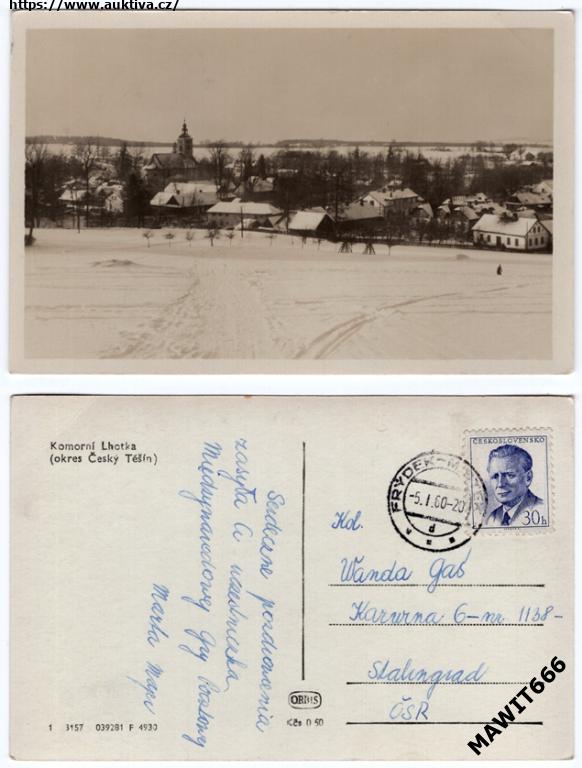 https://www.auktiva.cz/
Komorní Lhotka
(okres Český Těšín)
Serdeczne pozdrowienia
zasyła Ci uczestniczka
Międzynarodowej Gry
Marta
FRÝDEK-MÍSTEK
-5.I.60-20
d
ČESKOSLOVENSKO
30h
Kol.
Wanda Gaś
Karwina 6-nr. 1138-
Stalingrad
ČSR
ORBIS
Kčs 0.50
1 3157 039281 F 4930
MAWIT666